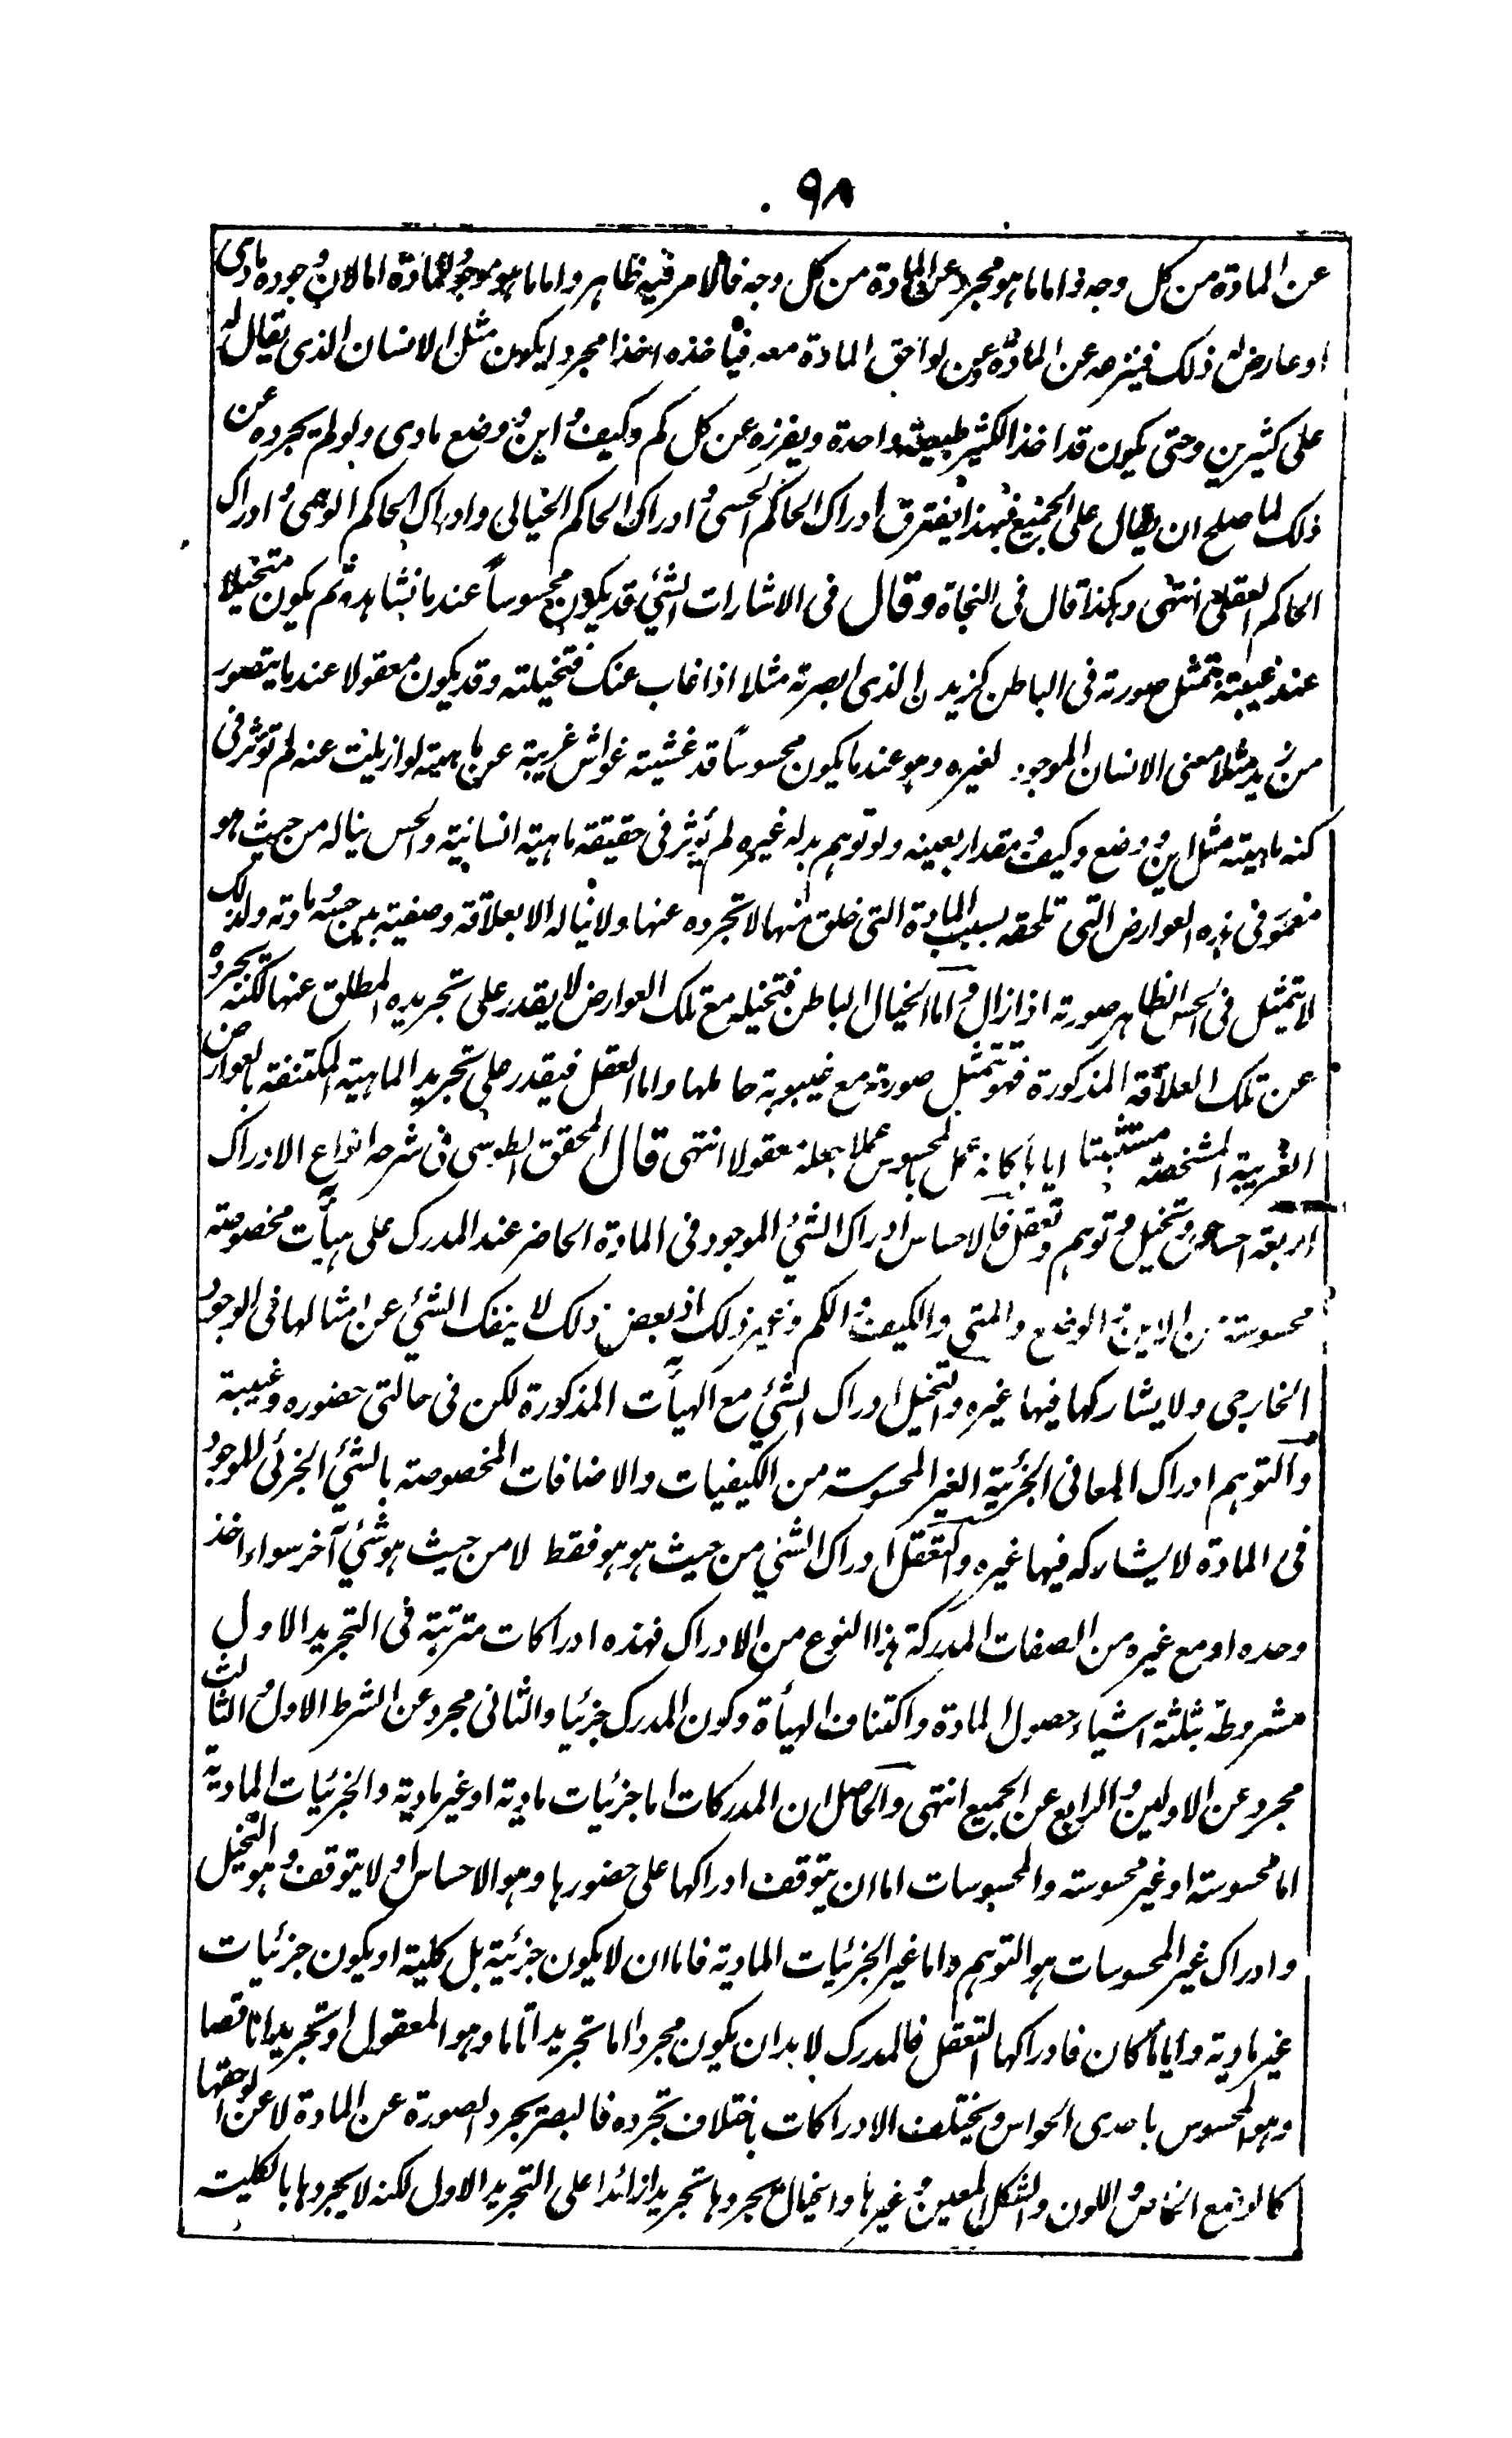 ٩٨
عن المادة من كل وجه واما ما هو مجرد عن المادة من كل وجه فالامر فيه ظاهر واما ما هو موجود للمادة اما لان وجوده مادى
او عارض له ذلك فينزعه عن المادة وعن لواحق المادة معه فيأخذه اخذا مجردا يكون مثل الانسان الذى يقال له
على كثيرين وحتى يكون قد اخذ الكثير طبيعة واحدة ويفرزه عن كل كم وكيف واين ووضع مادى ولو لم يجرده عن
ذلك لما صلح ان يقال على الجميع فبهذا يفترق ادراك الحاكم الحسى وادراك الحاكم الخيالى وادراك الحاكم الوهمى وادراك
الحاكم العقلى انتهى وهكذا قال فى النجاة وقال فى الاشارات الشئ قد يكون محسوساً عند ما نشاهده ثم يكون متخيلا
عند غيبته بتمثل صورته فى الباطن كزيد ن الذى ابصرته مثلا اذا غاب عنك فتخيلته وقد يكون معقولا عند ما يتصور
من زيد مثلا معنى الانسان الموجود لغيره وهو عند ما يكون محسوساً قد غشيته غواش غريبة عن ماهيته لو ازيلت عنه لم تؤثر فى
كنه ماهيته مثل اين ووضع وكيف ومقدار بعينه ولو توهم بدله غيره لم يؤثر فى حقيقة ماهية انسانية والحس يناله من حيث هو
مغمور فى هذه العوارض التى تلحقه بسبب المادة التى خلق منها لا تجرده عنها ولا يناله الا بعلاقة وضعية بين حسه ومادته ولذلك
لا يتمثل فى الحس الظاهر صورته اذا زال واما الخيال الباطن فتخيله مع تلك العوارض لا يقدر على تجريده المطلق عنها لكنه يجرده
عن تلك العلاقة المذكورة فهو يتمثل صورته مع غيبوبة حاملها واما العقل فيقدر على تجريد الماهية المكتنفة بالعوارض
الغريبة المشخصة مستثبتا اياها كانه عمل بالمحسوس عملا جعله معقولا انتهى قال المحقق الطوسى فى شرحه انواع الادراك
اربعة احساس وتخيل وتوهم وتعقل فالاحساس ادراك الشئ الموجود فى المادة الحاضر عند المدرك على هيأت مخصوصة
محسوسة من الاين والوضع والمتى والكيف والكم وغير ذلك اذ بعض ذلك لا ينفك الشئ عن امثالها فى الوجود
الخارجى ولا يشاركها فيها غيره والتخيل ادراك الشئ مع الهيأت المذكورة لكن فى حالتى حضوره وغيبة
والتوهم ادراك المعانى الجزئية الغير المحسوسة من الكيفيات والاضافات المخصوصة بالشئ الجزئى الموجود
فى المادة لا يشاركه فيها غيره والتعقل ادراك الشئ من حيث هو هو فقط لا من حيث هو شئ آخر سواء اخذ
وحده او مع غيره من الصفات المدركة هذا النوع من الادراك فهذه ادراكات مترتبة فى التجريد الاول
مشروطة بثلثة اشياء حصول المادة واكتناف الهيأة وكون المدرك جزئيا والثانى مجرد عن الشرط الاول والثالث
مجرد عن الاولين والرابع عن الجميع انتهى والحاصل ان المدركات اما جزئيات مادية او غير مادية والجزئيات المادية
اما محسوسة او غير محسوسة والمحسوسات اما ان يتوقف ادراكها على حضورها وهو الاحساس او لا يتوقف وهو التخيل
وادراك غير المحسوسات هو التوهم واما غير الجزئيات المادية فاما ان لا يكون جزئية بل كلية او يكون جزئيات
غير مادية وأياً ما كان فادراكها التعقل فالمدرك لا بد ان يكون مجردا اما تجريدا تاما وهو المعقول او تجريدا ناقصا
وهو المحسوس باحدى الحواس ويختلف الادراكات باختلاف تجرده فالبصر يجرد الصورة عن المادة لا عن لواحقها
كالوضع الخاص واللون والشكل المعين وغيرها والخيال يجردها تجريدا زائدا على التجريد الاول لكنه لا يجردها بالكلية